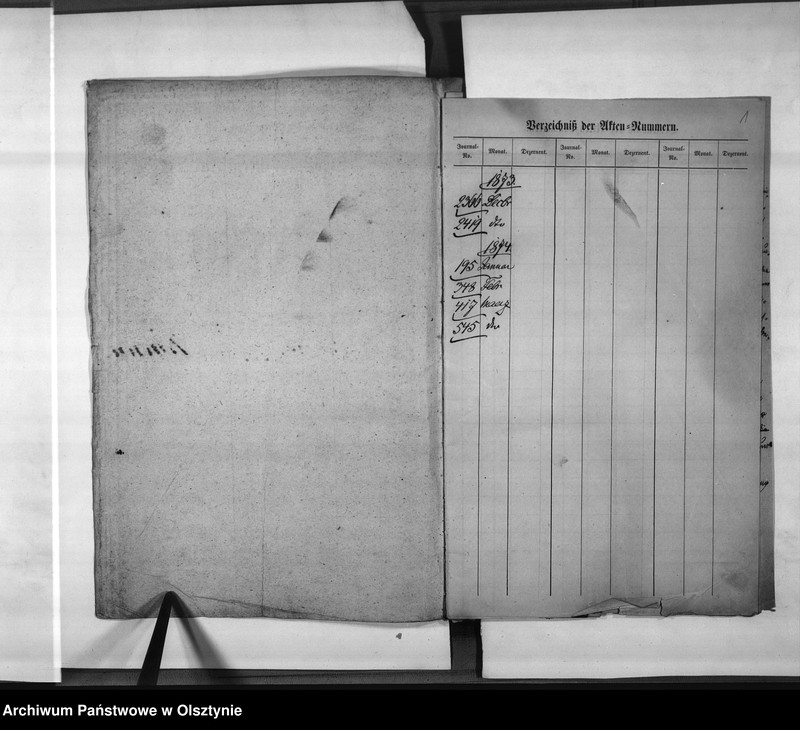 1
Verzeichniß der Akten=Nummern.
Journal-No. Monat. Dezernent. Journal-No. Monat. Dezernent. Journal-No. Monat. Dezernent.
1873.
2366 Decbr
2414 dto
1874.
195 Januar
348 Febr
417 Maerz
545 dto
Archiwum Państwowe w Olsztynie